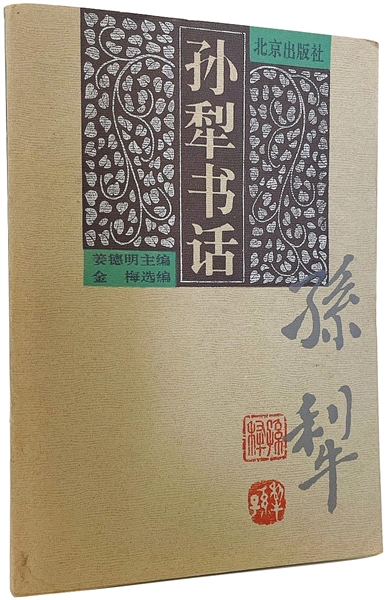 孙犁书话
北京出版社
姜德明主编
金 梅选编
孫犁
孫犁
孫犁